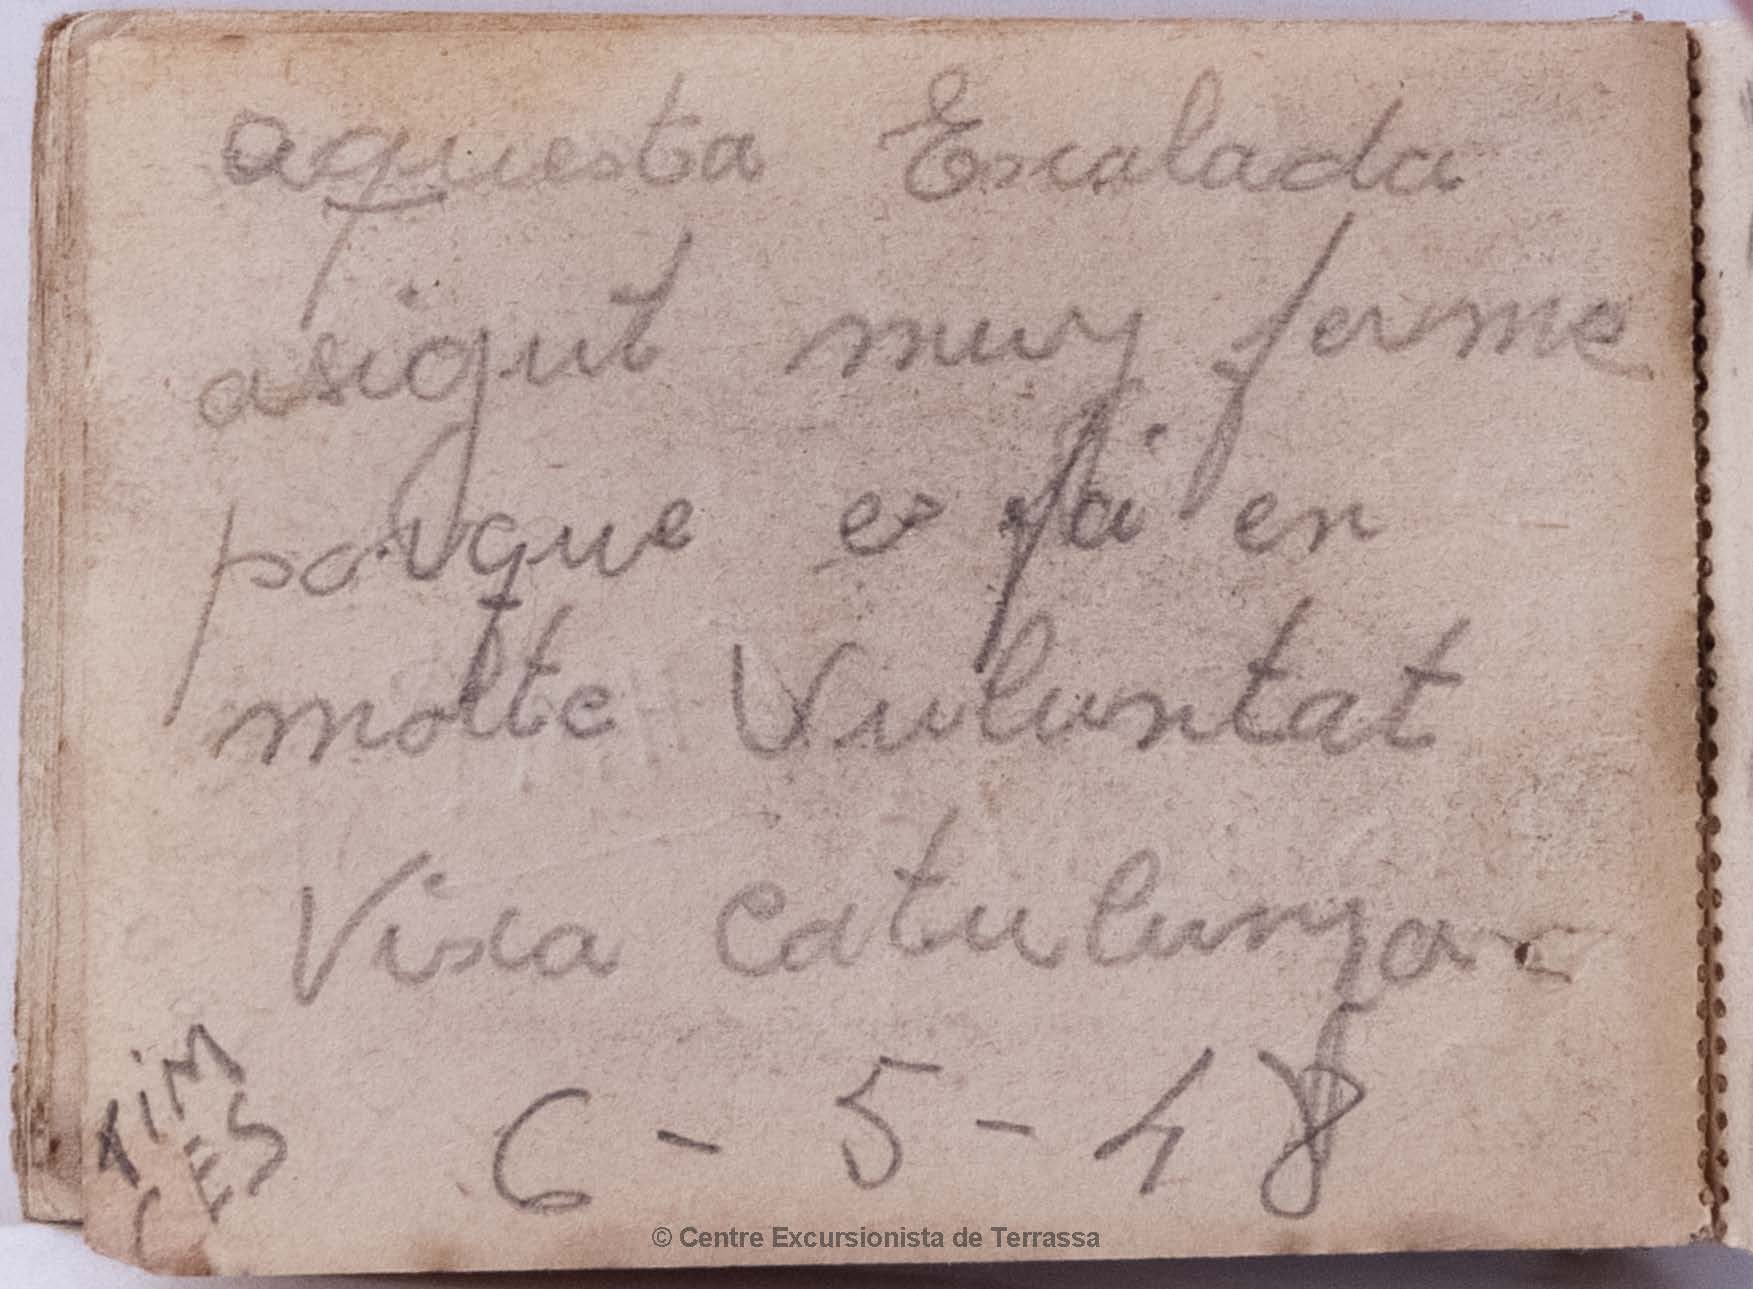 aquesta Escalada
asigut muy ferme
porque es fa en
molte Vuluntat
Visca Catulunya
6 - 5 - 48
TIM
CES
© Centre Excursionista de Terrassa